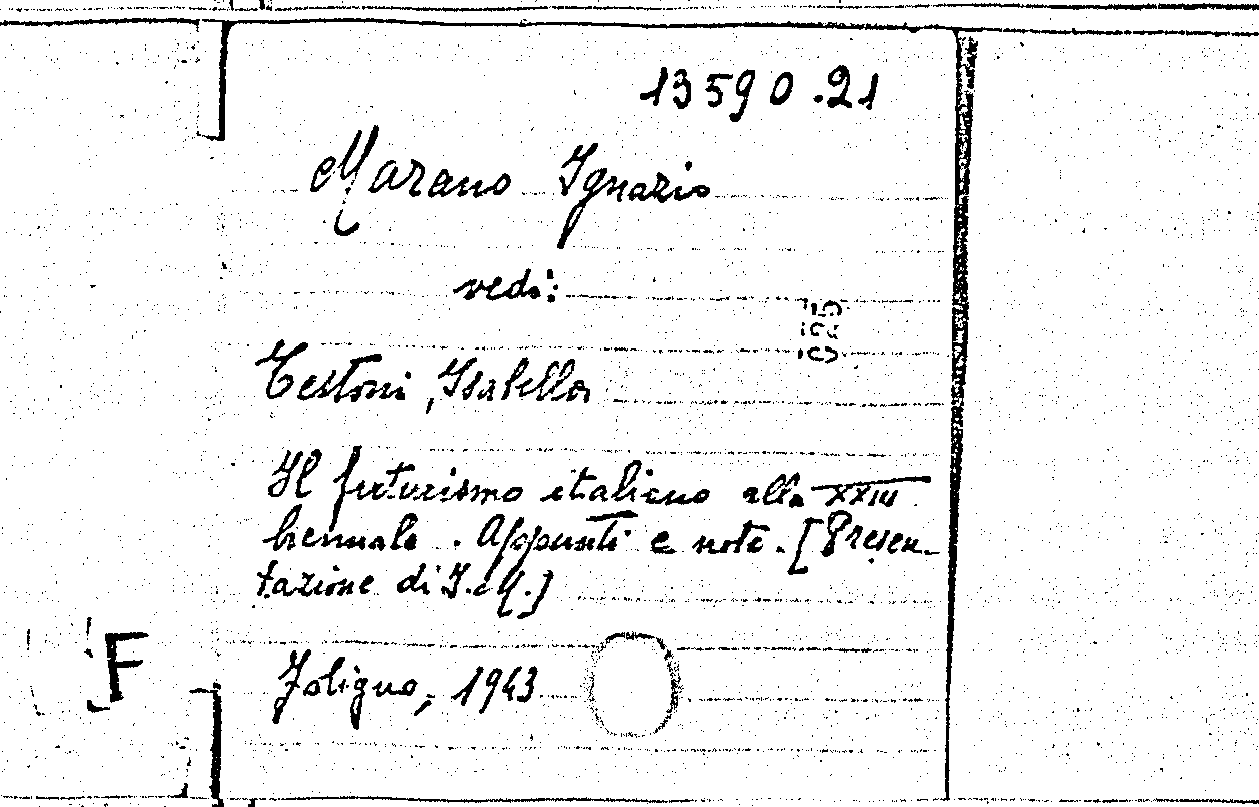 13590.21
Marano Ignazio
vedi:
Testoni, Isabella
Il futurismo italiano alla XXIII
biennale. Appunti e note. [Presen-
tazione di I. M.]
Foligno, 1943
F